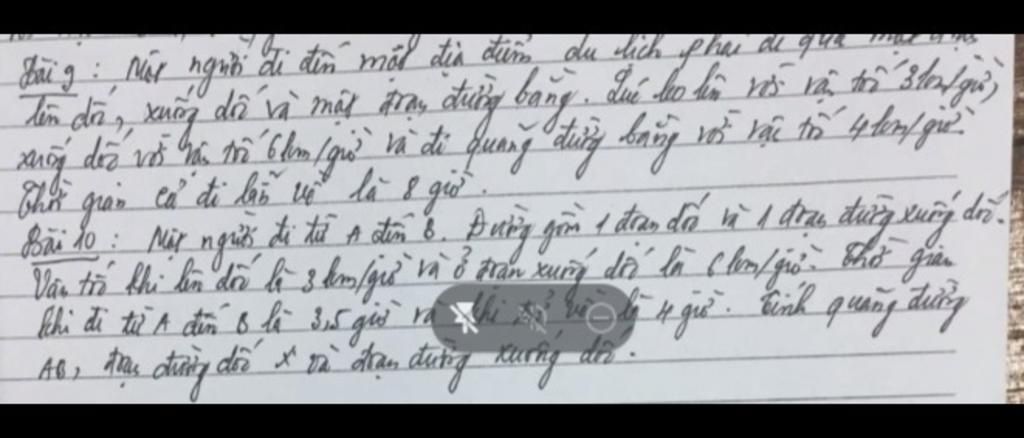 Bài 9 : Một người đi đến một địa điểm du lịch phải đi qua một
lên dốc, xuống dốc và một đoạn đường bằng. Lúc leo lên với vận tốc 3km/giờ,
xuống dốc với vận tốc 6km/giờ và đi quãng đường bằng với vận tốc 4km/giờ.
Thời gian cả đi lẫn về là 8 giờ.
Bài 10 : Một người đi từ A đến B. Đường gồm 1 đoạn dốc và 1 đoạn đường xuống dốc.
Vận tốc khi lên dốc là 3km/giờ và ở đoạn xuống dốc là 6km/giờ. Thời gian
khi đi từ A đến B là 3,5 giờ và khi về là 4 giờ. Tính quãng đường
AB, đoạn đường dốc x và đoạn đường xuống dốc.